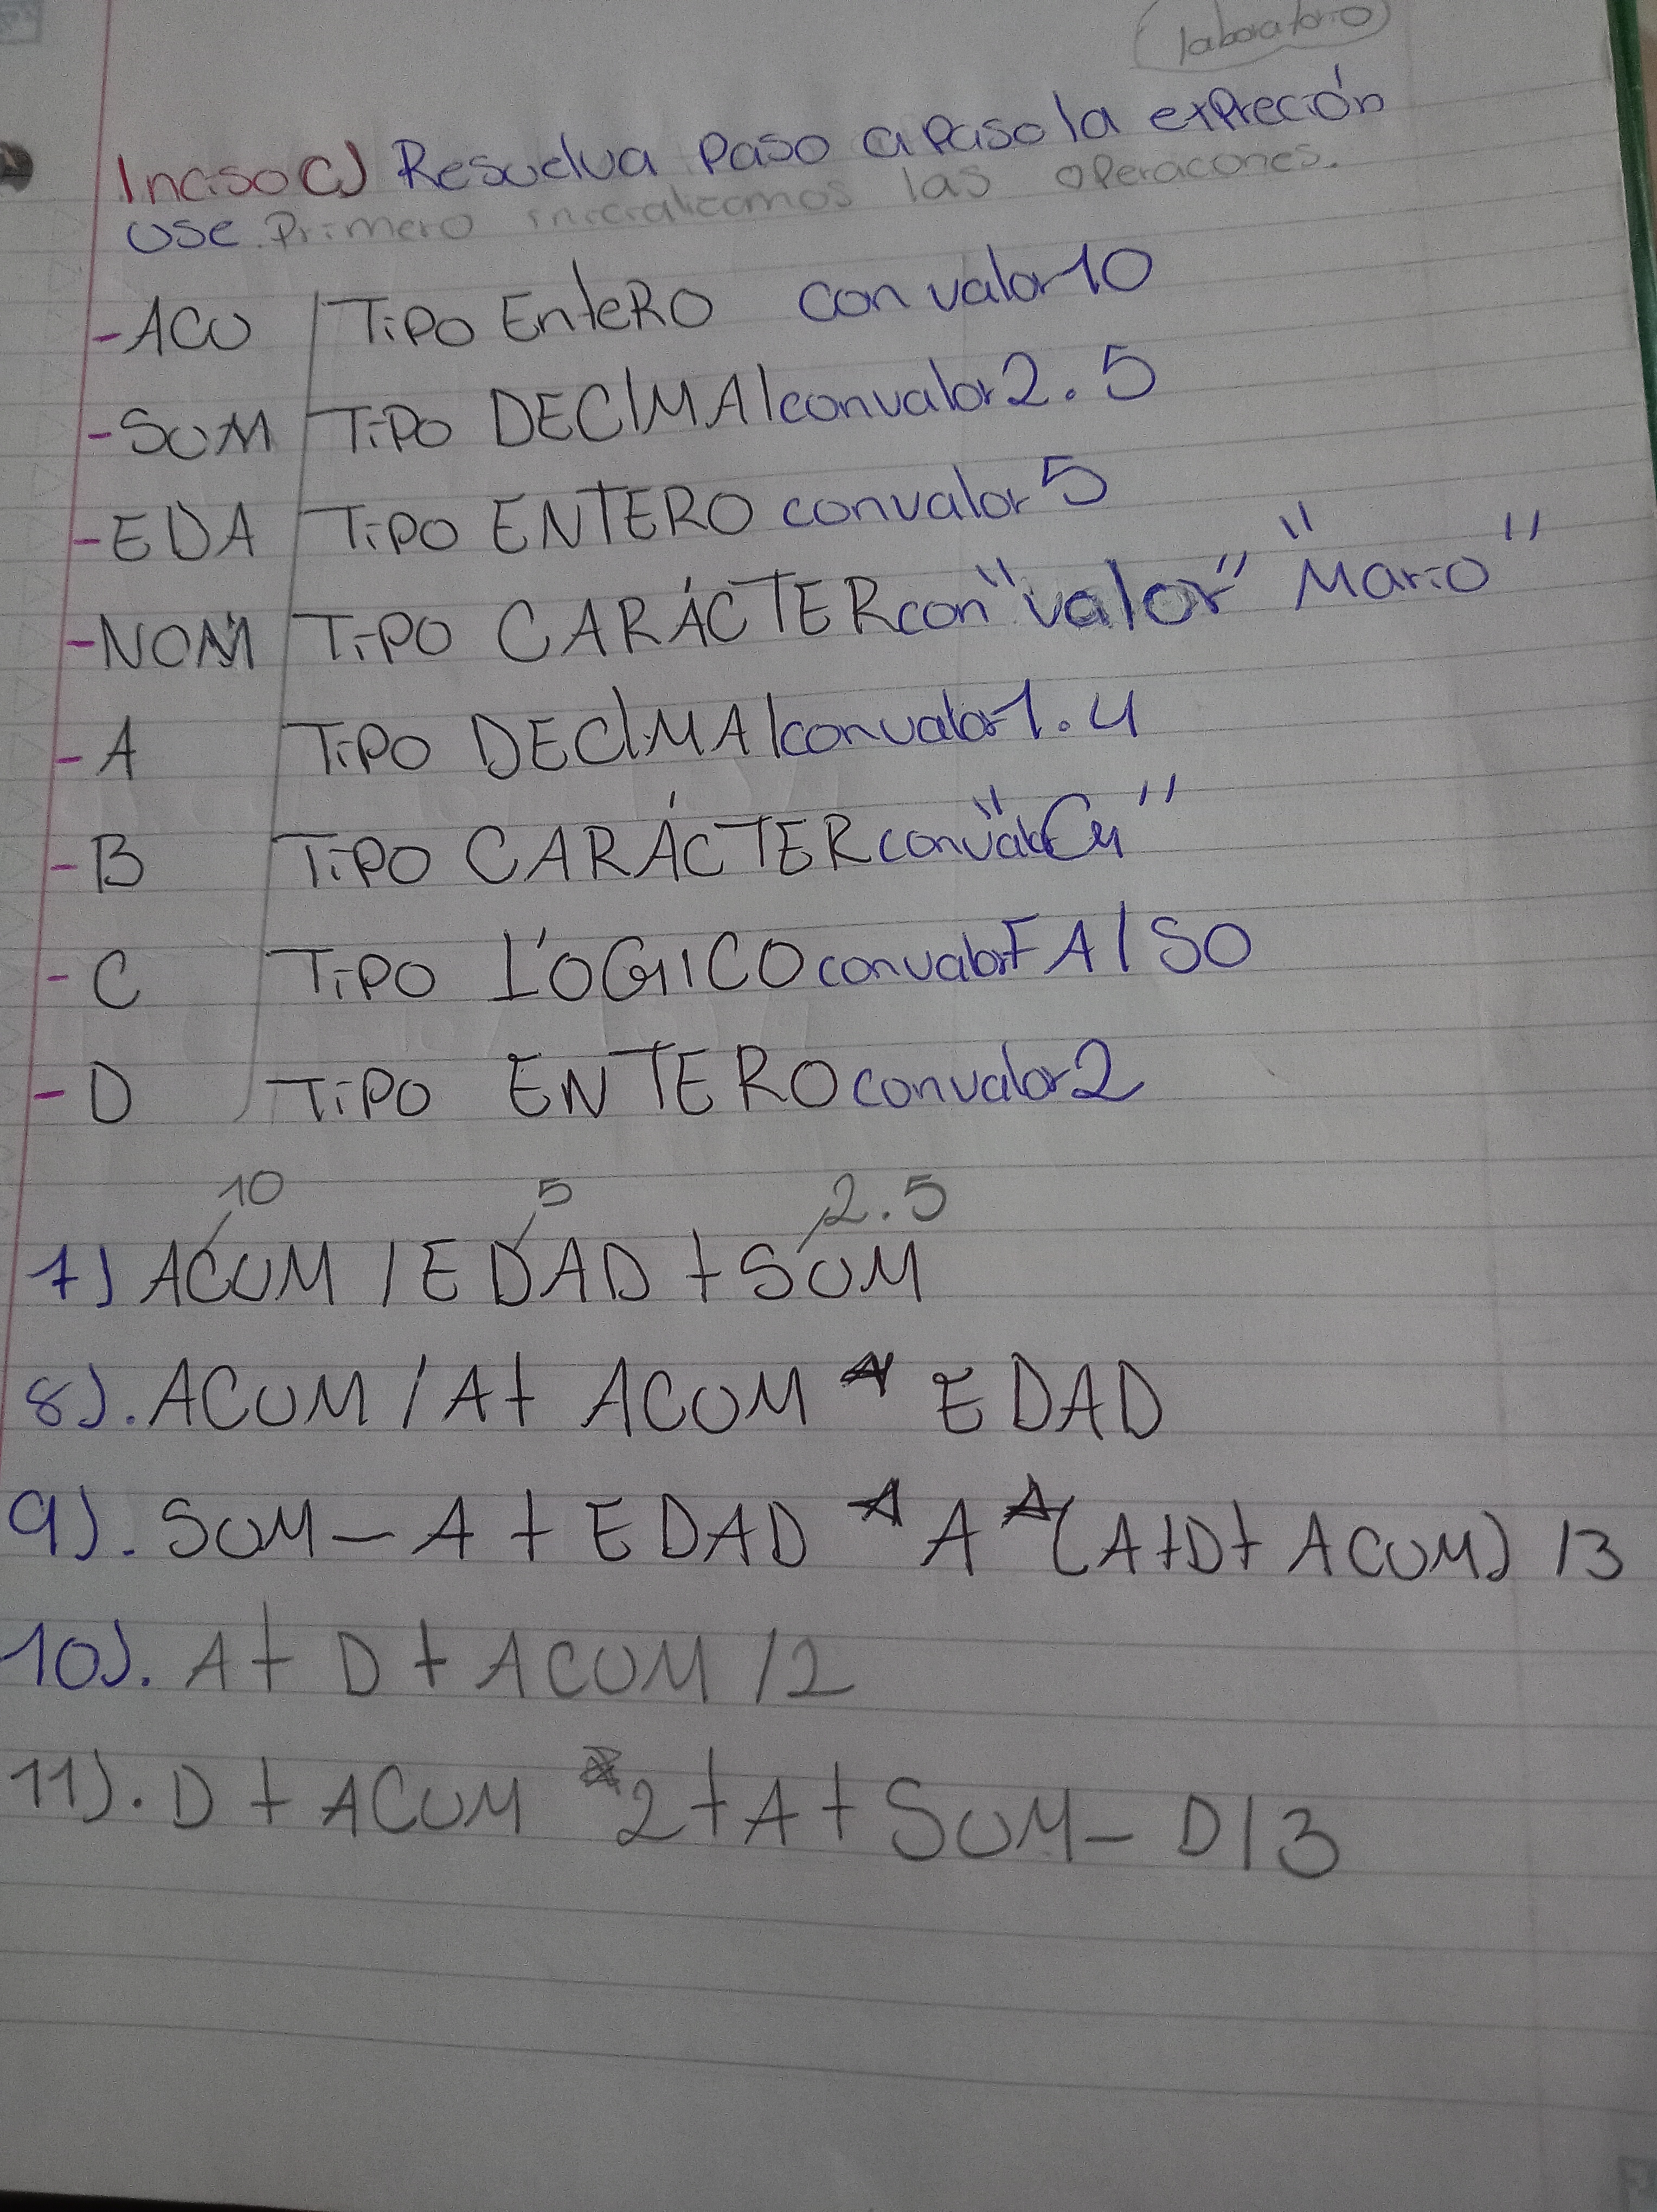 laboratorio
Inciso C) Resuelva Paso a Paso la expreción
use. Primero inicializamos las operacones.
- ACU TiPO EnteRO con valor 10
- SUM TiPO DECIMAl con valor 2.5
- EDA TiPO ENTERO con valor 5
- NOM TiPO CARÁCTER con "valor" "Mario"
- A TiPO DECIMAl con valor 1.4
- B TiPO CARÁCTER con valor "G"
- C TiPO LÓGICO con valor FAlSO
- D TiPO ENTERO con valor 2
10 5 2.5
7) ACUM / EDAD + SUM
8). ACUM / A + ACUM * EDAD
9). SUM - A + EDAD * A * (A + D + ACUM) / 3
10). A + D + ACUM / 2
11). D + ACUM * 2 + A + SUM - D / 3